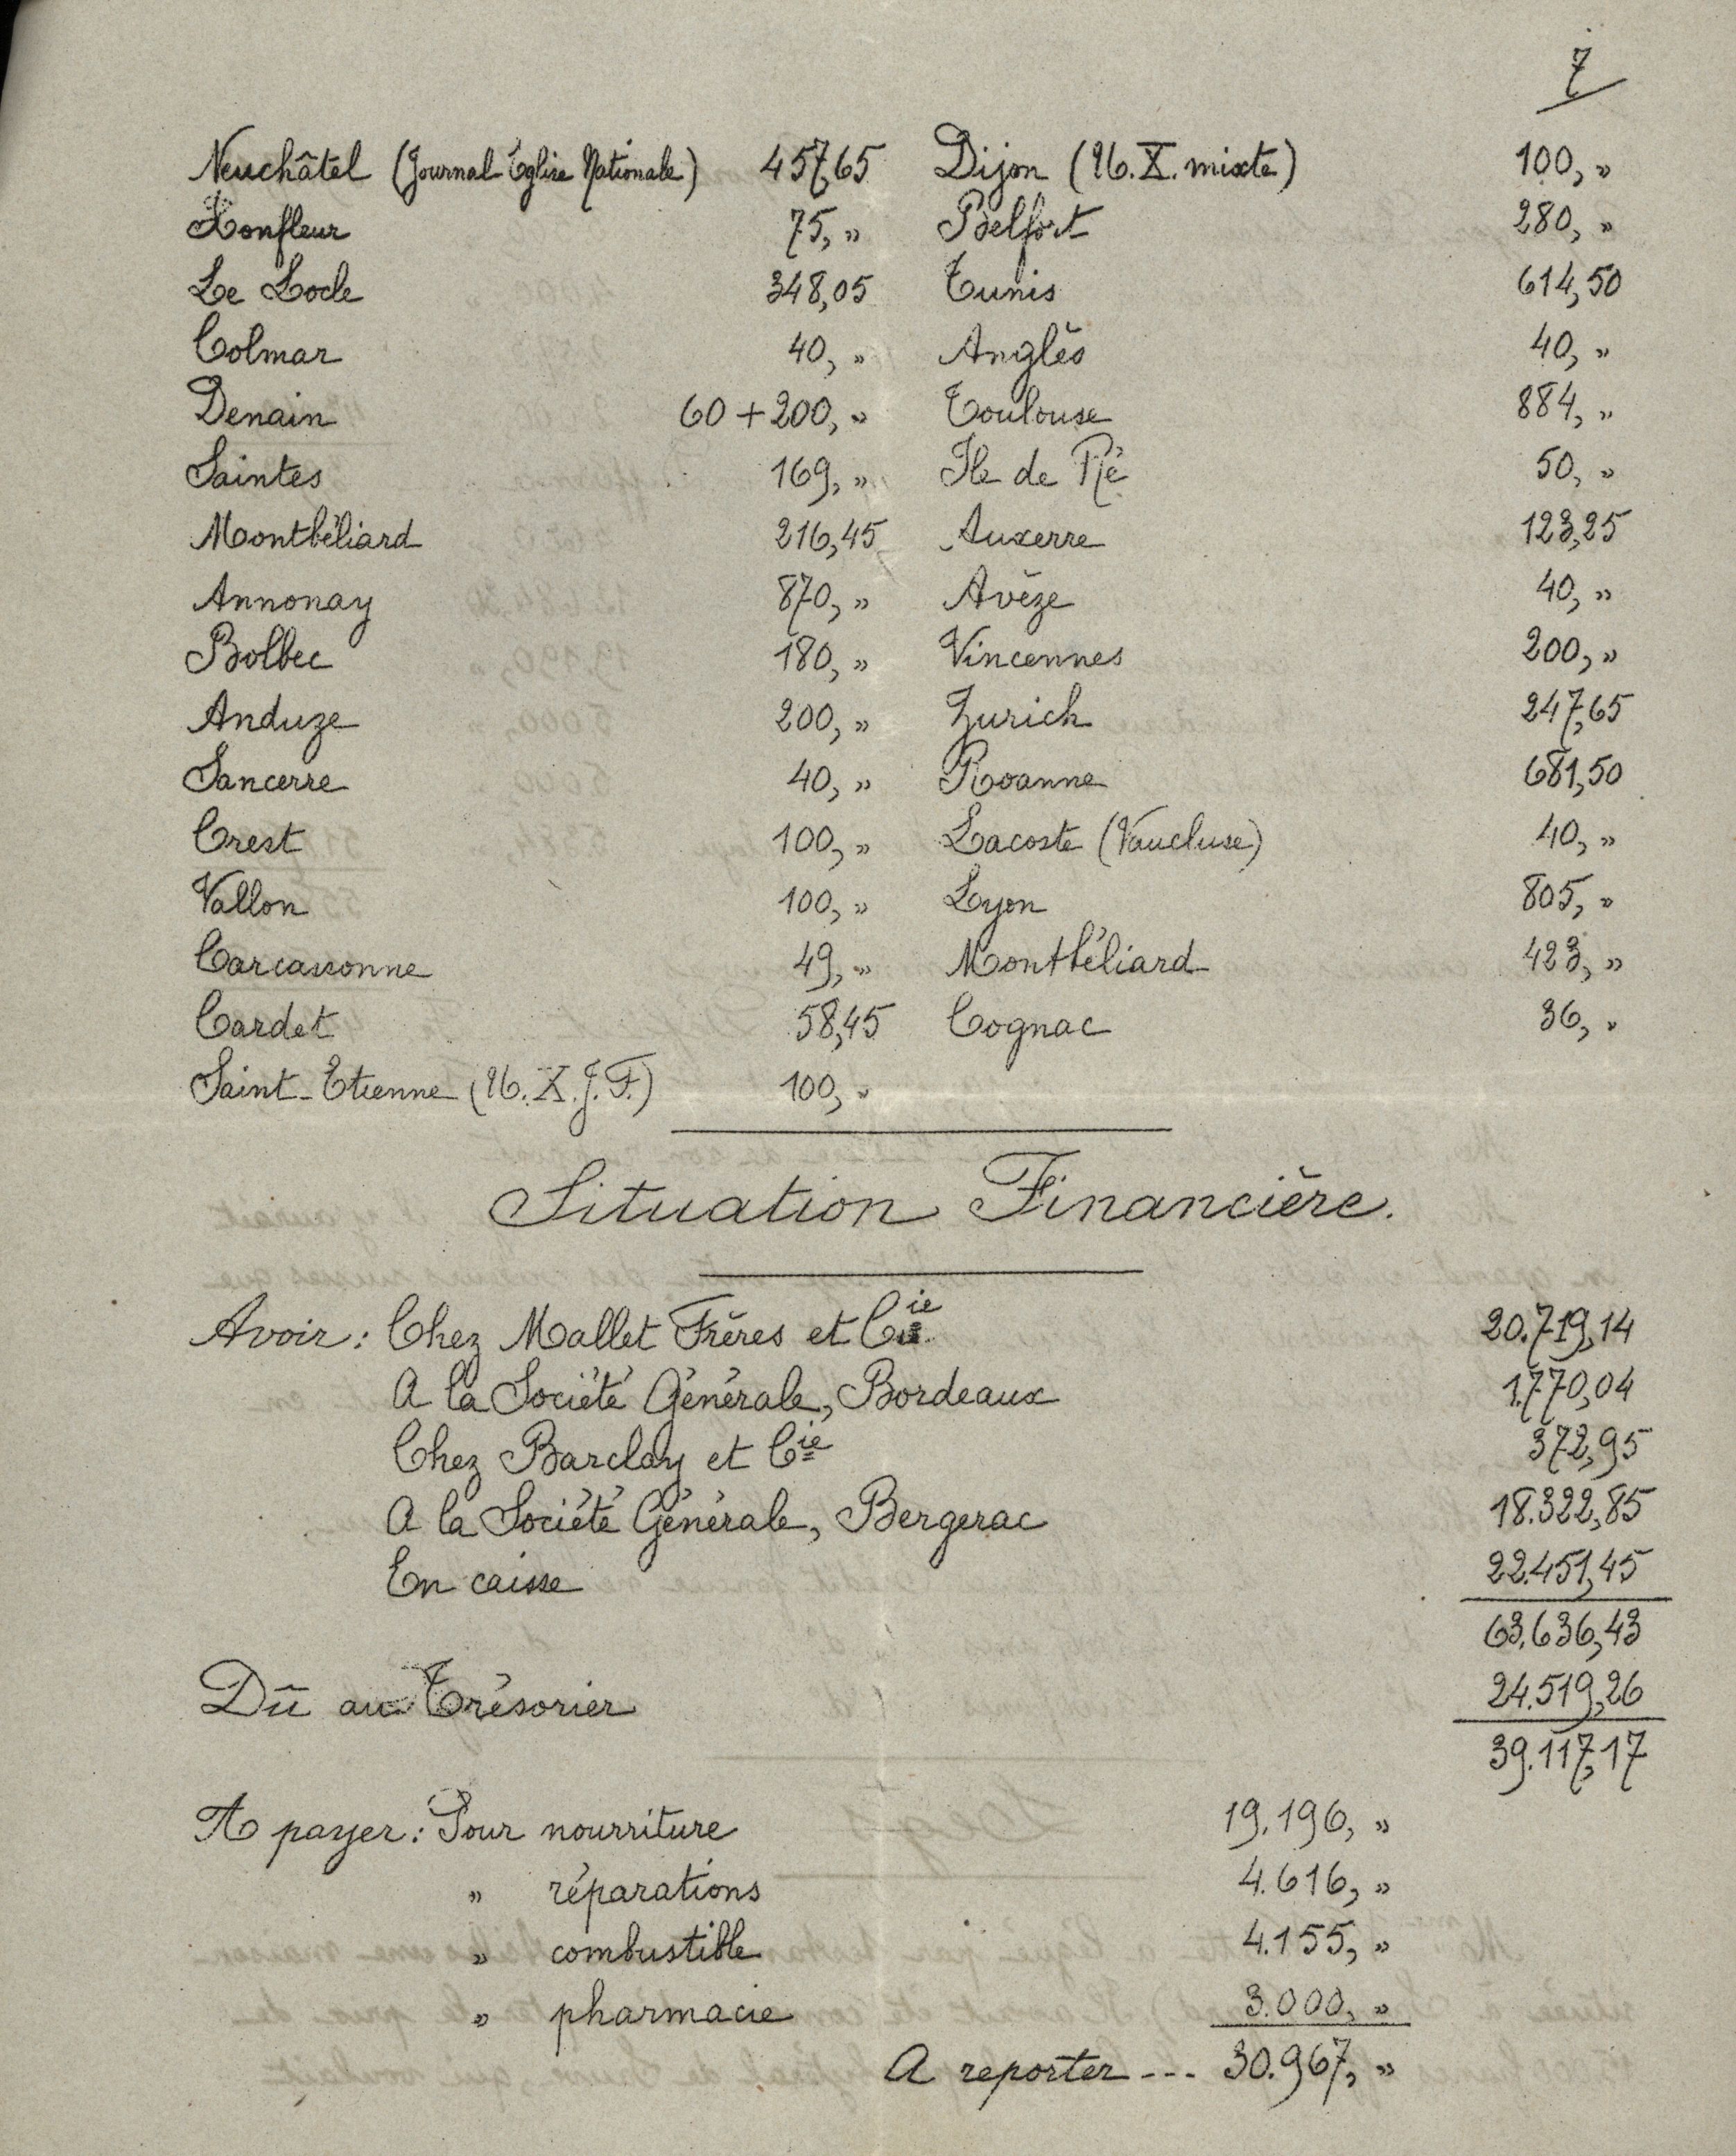 7
Neuchâtel (Journal Église Nationale) 457,65 Dijon (U. X. mixte) 100, »
Honfleur 75, » Belfort 280, »
Le Locle 348,05 Tunis 614,50
Colmar 40, » Anglès 40, »
Denain 60 + 200, » Toulouse 884, »
Saintes 169, » Ile de Ré 50, »
Montbéliard 216,45 Auxerre 123,25
Annonay 870, » Avèze 40, »
Bolbec 180, » Vincennes 200, »
Anduze 200, » Zurich 247,65
Sancerre 40, » Roanne 681,50
Crest 100, » Lacoste (Vaucluse) 40, »
Vallon 100, » Lyon 805, »
Carcassonne 49, » Montbéliard 423, »
Cardet 58,45 Cognac 36, »
Saint-Etienne (U. X. J. F.) 100, »
Situation Financière.
Avoir : Chez Mallet Frères et Cie 20.719,14
A la Société Générale, Bordeaux 1.770,04
Chez Barclay et Cie 372,95
A la Société Générale, Bergerac 18.322,85
En caisse 22.451,45
63.636,43
Dû au Trésorier 24.519,26
39.117,17
A payer : Pour nourriture 19.196, »
» réparations 4.616, »
» combustible 4.155, »
» pharmacie 3.000, »
A reporter --- 30.967, »